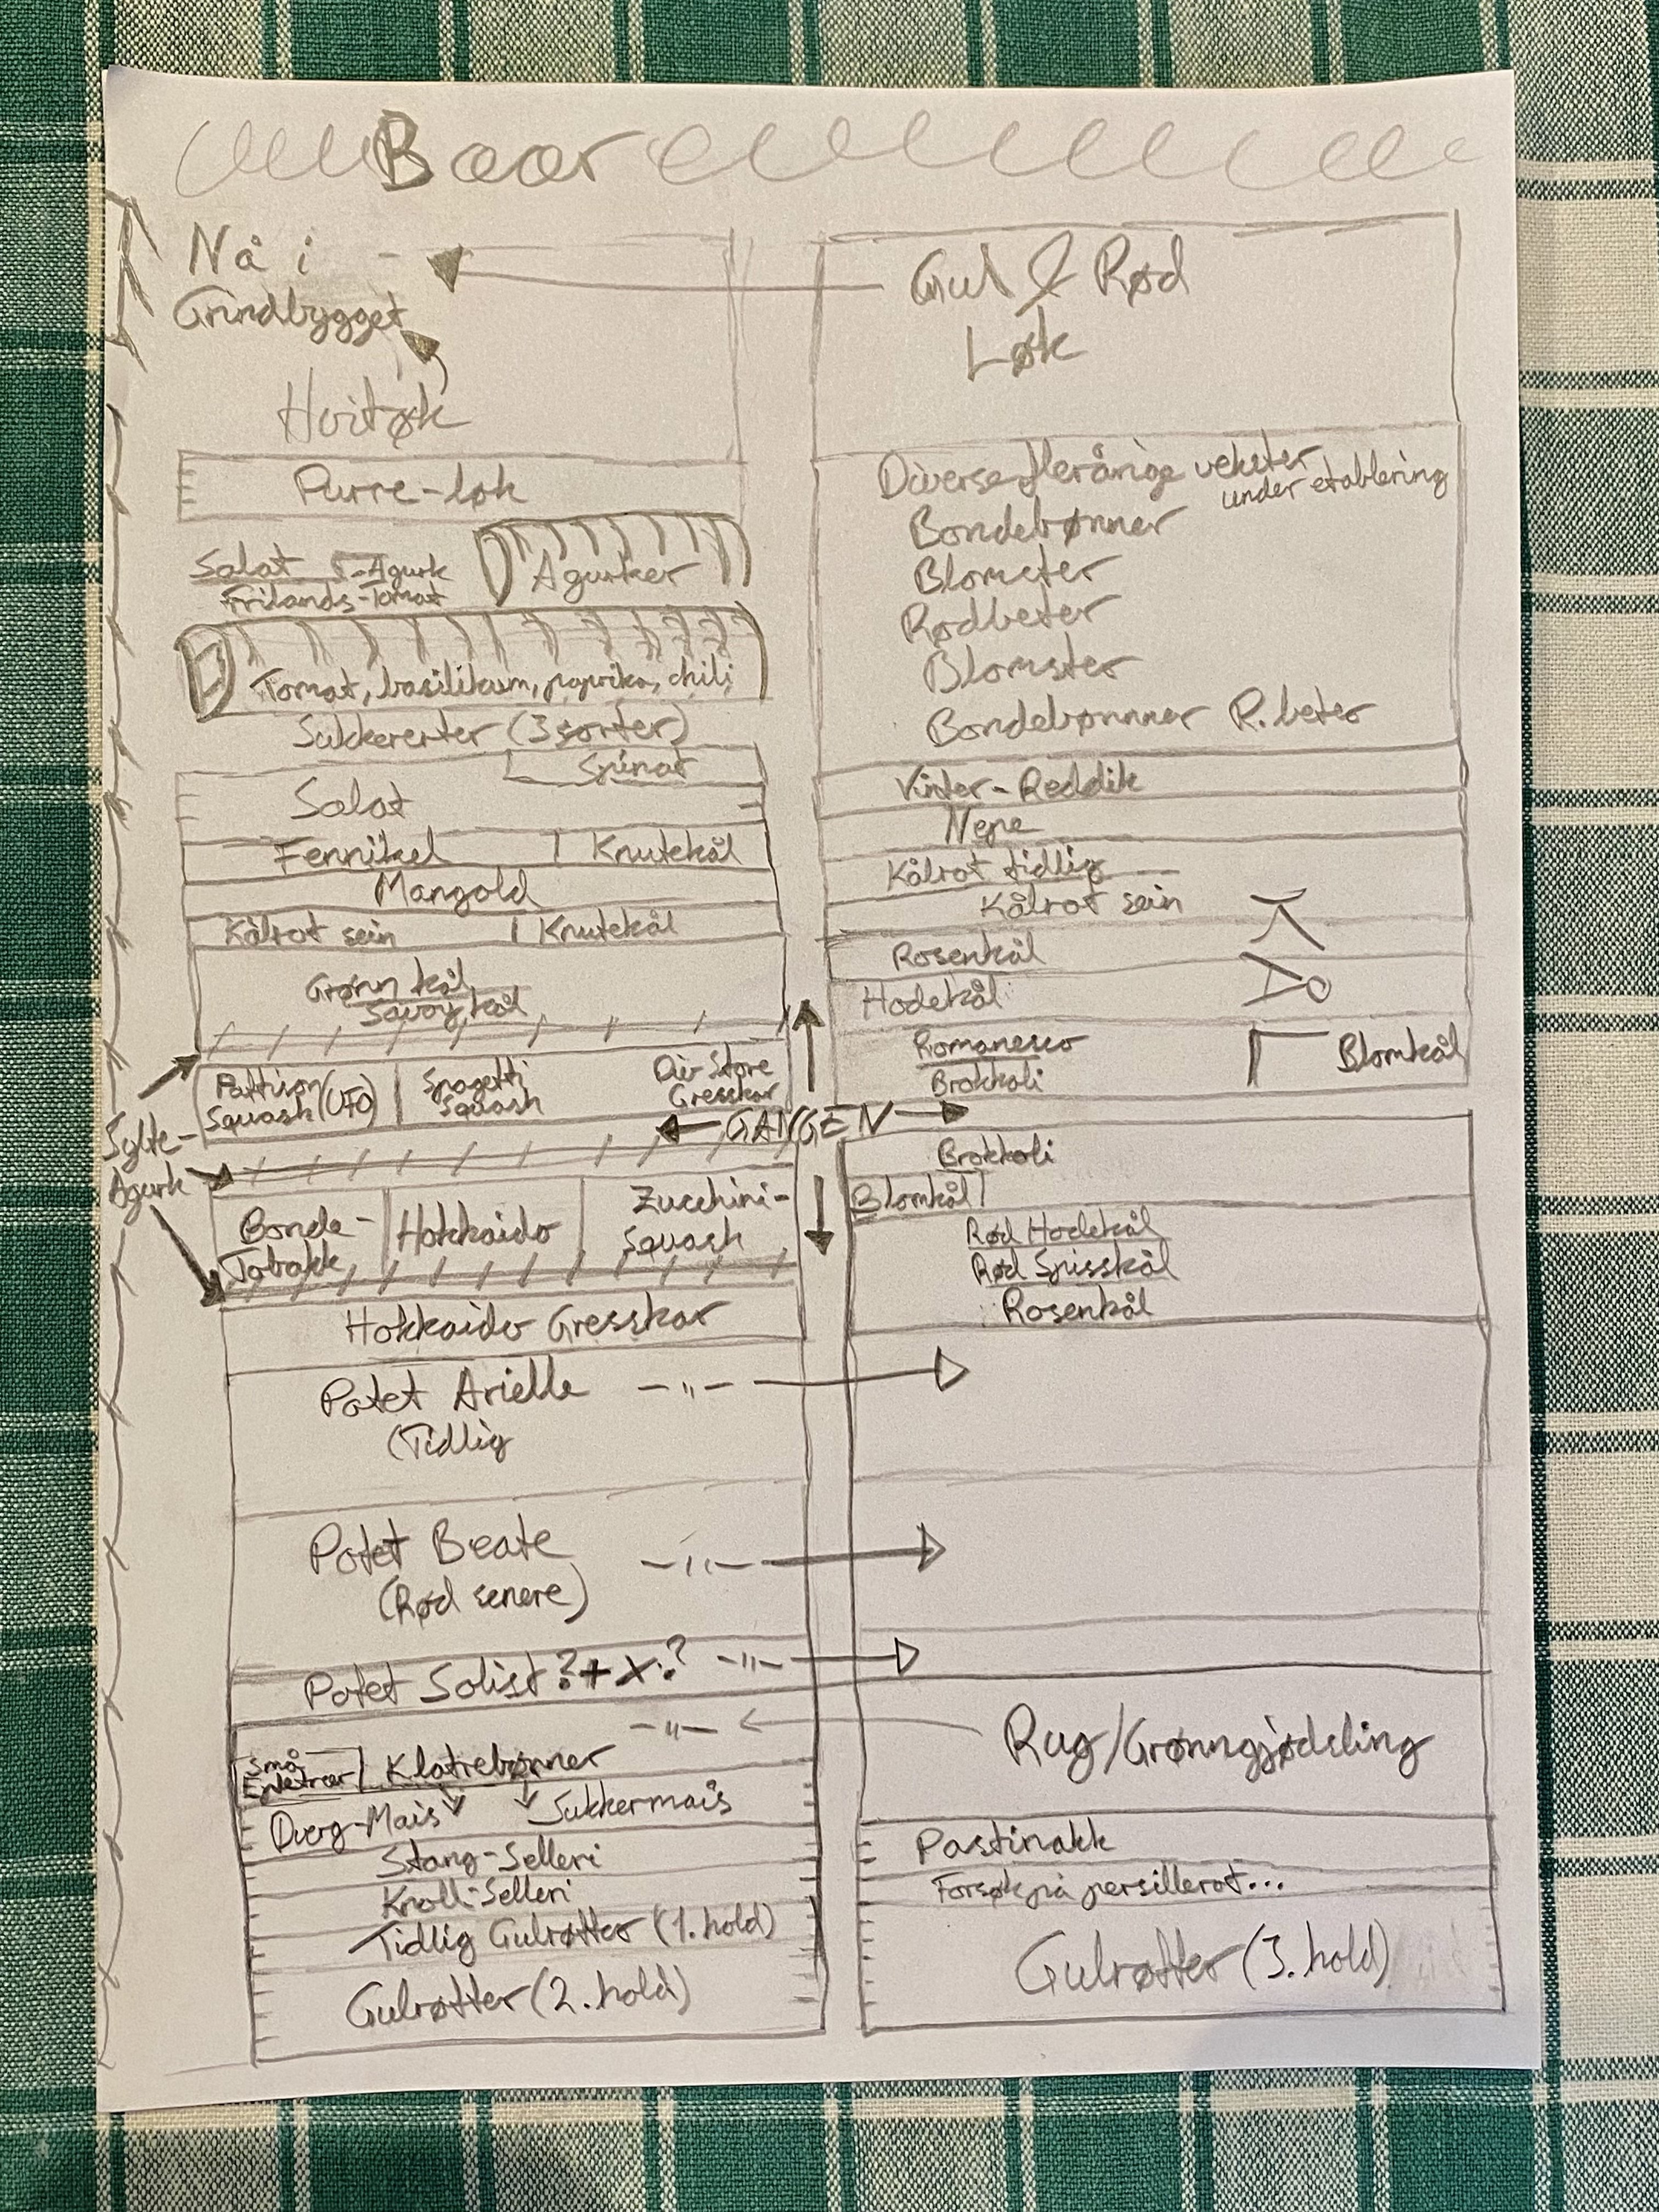 Bær
Nå i
Grindbygget
Hvitøk
Purre-løk
Salat S-Agurk
Frilands-Tomat
Agurker
Tomat, basilikum, paprika, chili
Sukkererter (3 sorter)
Spinat
Salat
Fennikel | Knutekål
Mangold
Kålrot sein | Knutekål
Grønnkål
Savoykål
Pattison Squash (UFO)
Spagetti Squash
Div Store Gresskar
GANGEN
Sylte-
Agurk
Bonde-
Tobakk
Hokkaido
Zucchini-
Squash
Hokkaido Gresskar
Potet Arielle
(Tidlig
Potet Beate
(Rød senere)
Potet Solist?+ X.?
Små
Epletrær
Klatrebønner
Dverg-Mais
Sukkermais
Stang-Selleri
Knoll-Selleri
Tidlig Gulrøtter (1. hold)
Gulrøtter (2. hold)
Gul & Rød
Løk
Diverse flerårige vekster
under etablering
Bondebønner
Blomster
Rødbeter
Blomster
Bondebønnner R. beter
Vinter-Reddik
Nepe
Kålrot tidlig
Kålrot sein
Rosenkål
Hodekål
Romanesco
Brokkoli
Blomkål
Brokkoli
Blomkål
Rød Hodekål
Rød Spisskål
Rosenkål
Rug/Grønngjødsling
Pastinakk
Forsøk på persillerot...
Gulrøtter (3. hold)